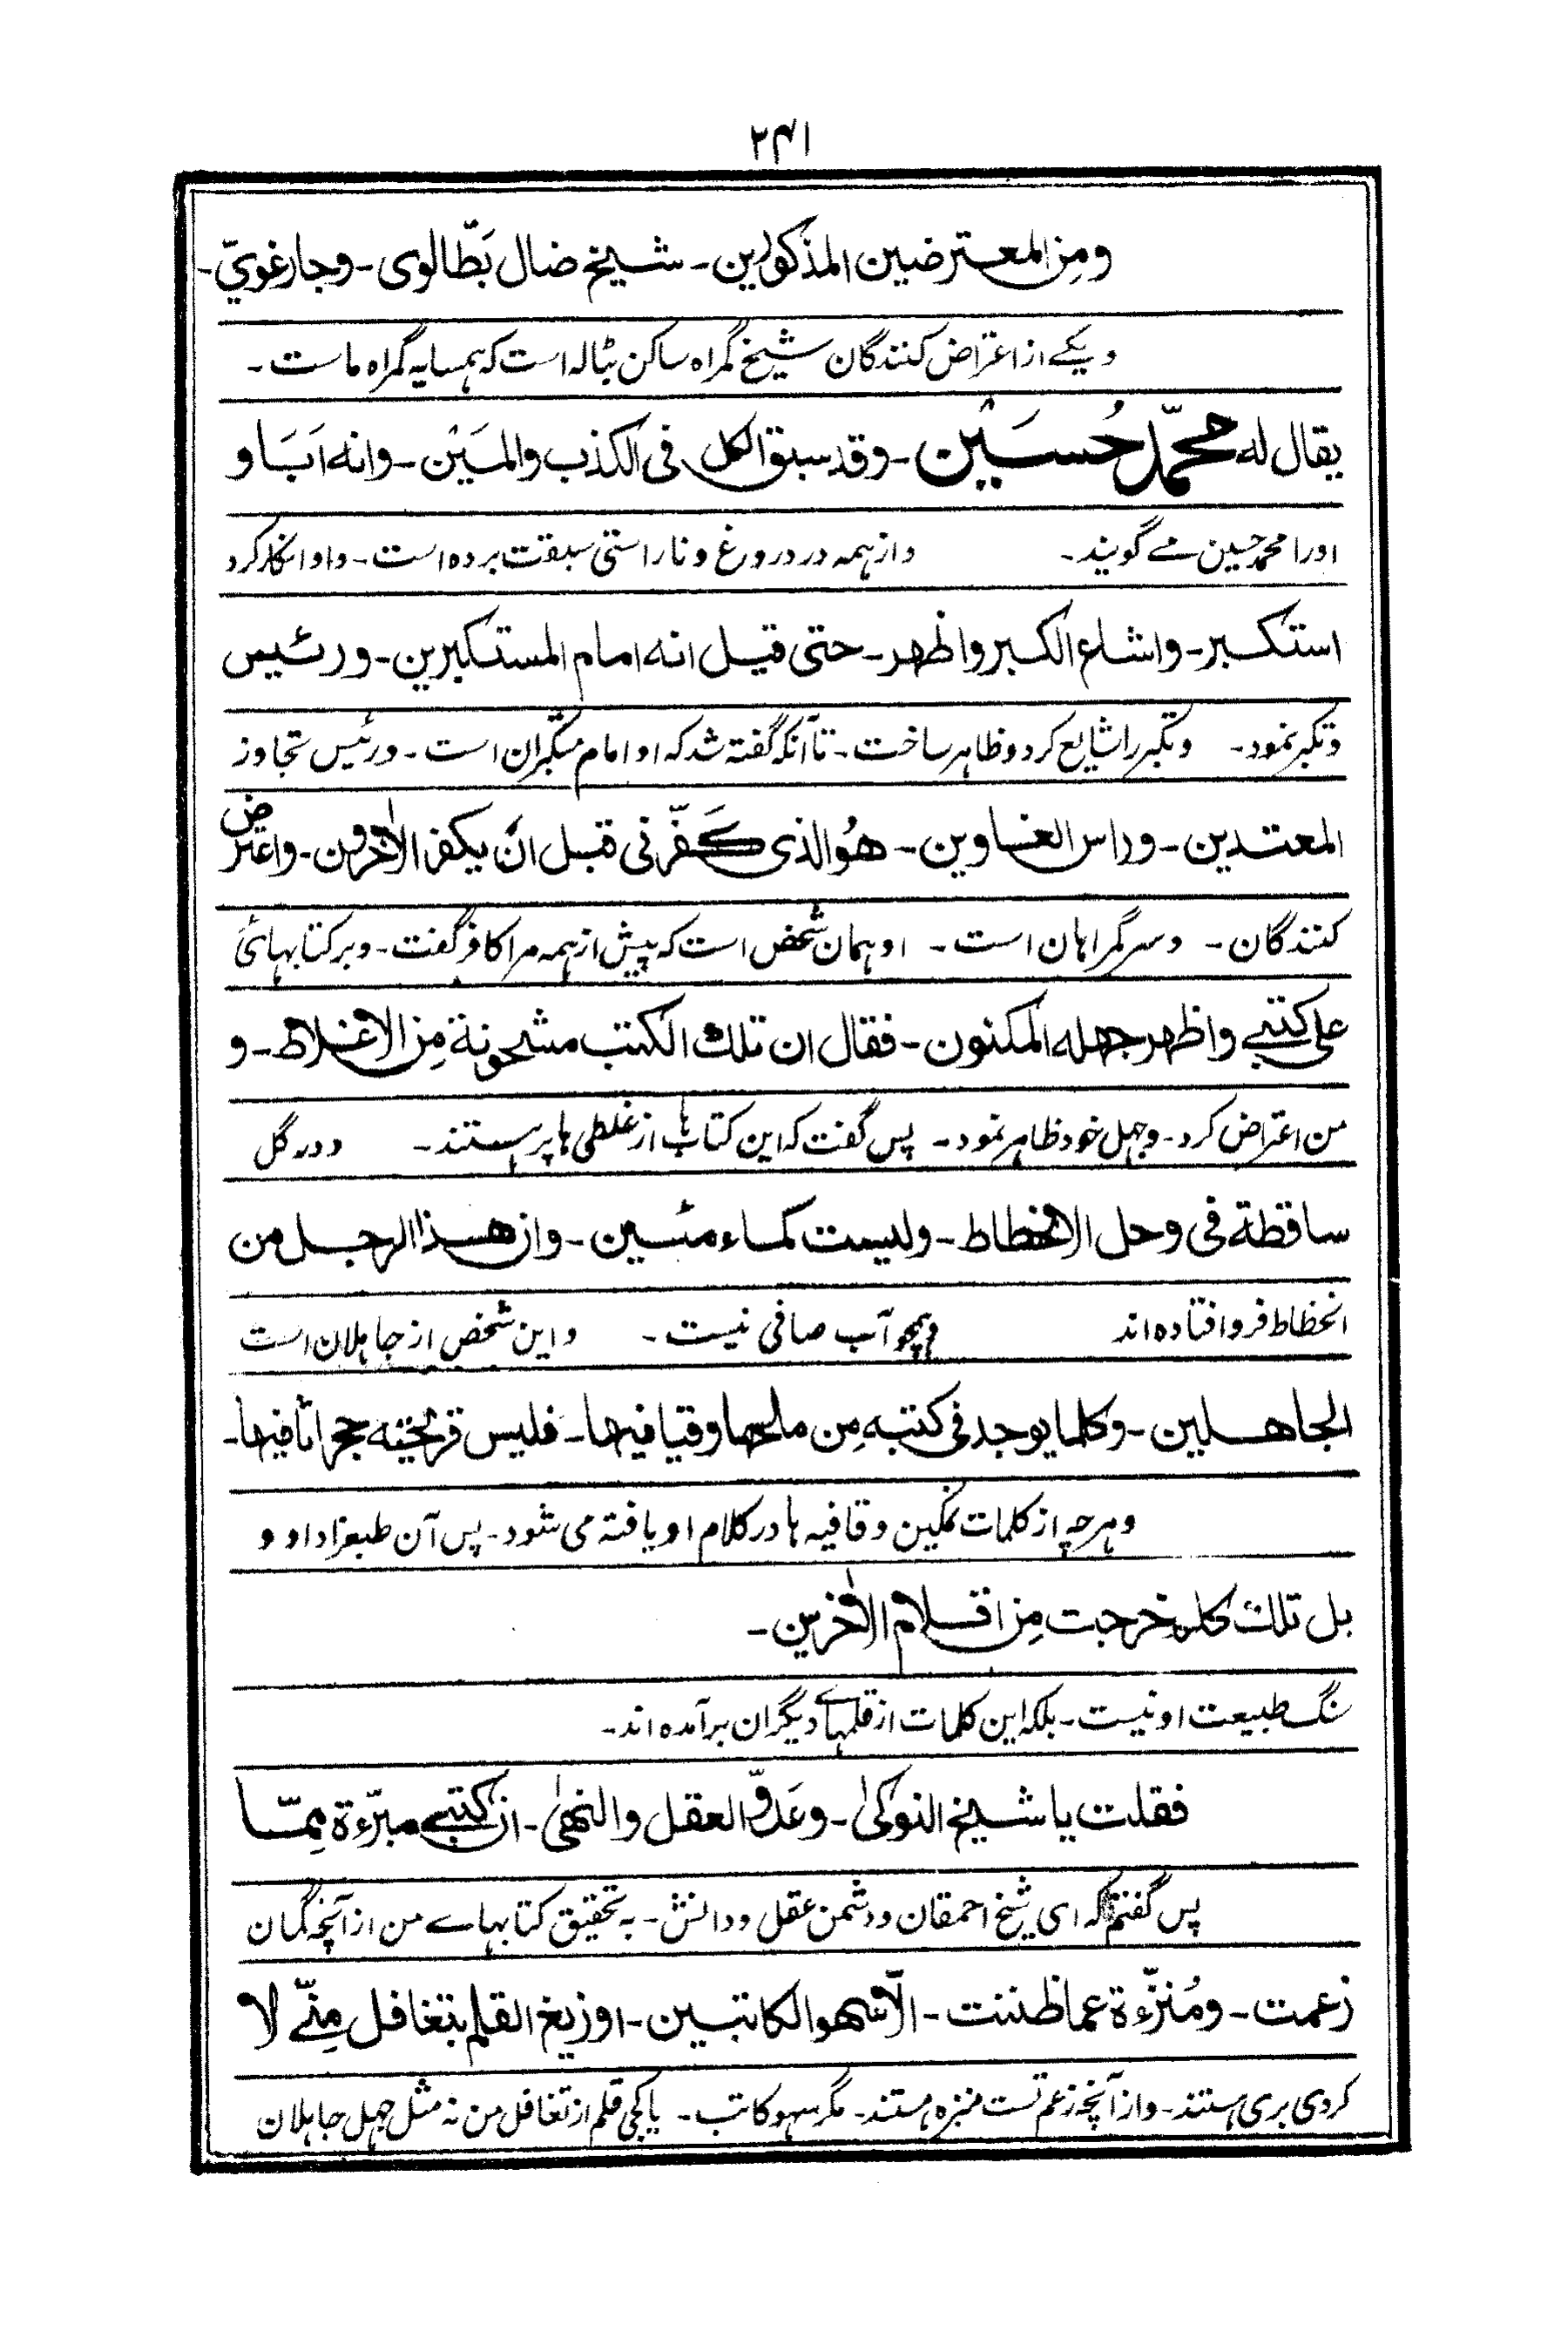 ۲۴۱
ومن المعترضین المذکورین۔ شیخ ضال بَطّالوی۔ وجار غویّ۔
و یکے از اعتراض کنندگان شیخ گمراہ ساکن بٹالہ است کہ ہمسایہ گمراہ ماست۔
یقال لہ محمّد حُسَین۔ وقد سبق الکل فی الکذب والمَیْن۔ وانہ اَبَا و
اورا محمد حسین مے گویند۔ و از ہمہ در دروغ و ناراستی سبقت بردہ است۔ و او انکار کرد
استکبر۔ واشاع الکبر واظہر۔ حتی قیل انہ امام المستکبرین۔ ورئیس
و تکبر نمود۔ و تکبر را شایع کرد و ظاہر ساخت۔ تا آنکہ گفتہ شد کہ او امام متکبران است۔ و رئیس تجاوز
المعتدین۔ وراس الغاوین۔ ھُو الذی کَفّرنی قبل ان یکفر الاٰخرون۔ واعترض
کنندگان۔ و سر گمراہان است۔ او ہمان شخص است کہ پیش از ہمہ مرا کافر گفت۔ و بر کتابہائ
علی کتبی واظہر جھلہ المکنون۔ فقال ان تلک الکتب مشحونۃ مِن الاغلاط۔ و
من اعتراض کرد۔ و جہل خود ظاہر نمود۔ پس گفت کہ این کتاب ہا از غلطی ہا پر ہستند۔ و در گل
ساقطۃ فی وحل الانحطاط۔ ولیست کماء مَعین۔ وان ھذا الرجل من
انحطاط فرو افتادہ اند وہمچو آب صافی نیست۔ و این شخص از جاہلان است
الجاھلین۔ وکلما یوجد فی کتبہ مِن ملحھا وقیافیھا۔ فلیس قریحتہ حجر اثافیھا۔
و ہر چہ از کلمات نمکین و قافیہ ہا در کلام او یافتہ می شود۔ پس آن طبعزاد او و
بل تلک کلم خرجت مِن اقلام الاٰخرین۔
سنگ طبیعت او نیست۔ بلکہ این کلمات از قلمہاے دیگران برآمدہ اند۔
فقلت یا شیخ النوکٰی۔ وعَدوّ العقل والنھیٰ۔ ان کتبی مبرّءۃ مِمّا
پس گفتم کہ ای شیخ احمقان و دشمن عقل و دانش۔ بہ تحقیق کتابہاے من از آنچہ گمان
زعمت۔ ومُنزّءۃ عما ظننت۔ الّا سھو الکاتبین۔ او زیغ القلم بتغافل مِنّی لا
کردی بری ہستند۔ و از آنچہ زعم تست منزہ ہستند۔ مگر سہو کاتب۔ یا کجی قلم از تغافل من نہ مثل جہل جاہلان